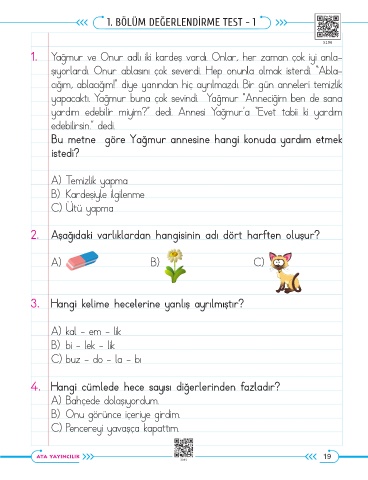 1. BÖLÜM DEĞERLENDİRME TEST - 1
1. Yağmur ve Onur adlı iki kardeş vardı. Onlar, her zaman çok iyi anla-
şıyorlardı. Onur ablasını çok severdi. Hep onunla olmak isterdi. "Abla-
cığım, ablacığım!" diye yanından hiç ayrılmazdı. Bir gün anneleri temizlik
yapacaktı. Yağmur buna çok sevindi. Yağmur "Anneciğim ben de sana
yardım edebilir miyim?" dedi. Annesi Yağmur'a "Evet tabii ki yardım
edebilirsin." dedi.
Bu metne göre Yağmur annesine hangi konuda yardım etmek
istedi?
A) Temizlik yapma
B) Kardesiyle ilgilenme
C) Ütü yapma
2. Aşağıdaki varlıklardan hangisinin adı dört harften oluşur?
A) B) C)
3. Hangi kelime hecelerine yanlış ayrılmıştır?
A) kal - em - lik
B) bi - lek - lik
C) buz - do - la - bı
4. Hangi cümlede hece sayısı diğerlerinden fazladır?
A) Bahçede dolaşıyordum.
B) Onu görünce içeriye girdim.
C) Pencereyi yavaşça kapattım.
ATA YAYINCILIK 19